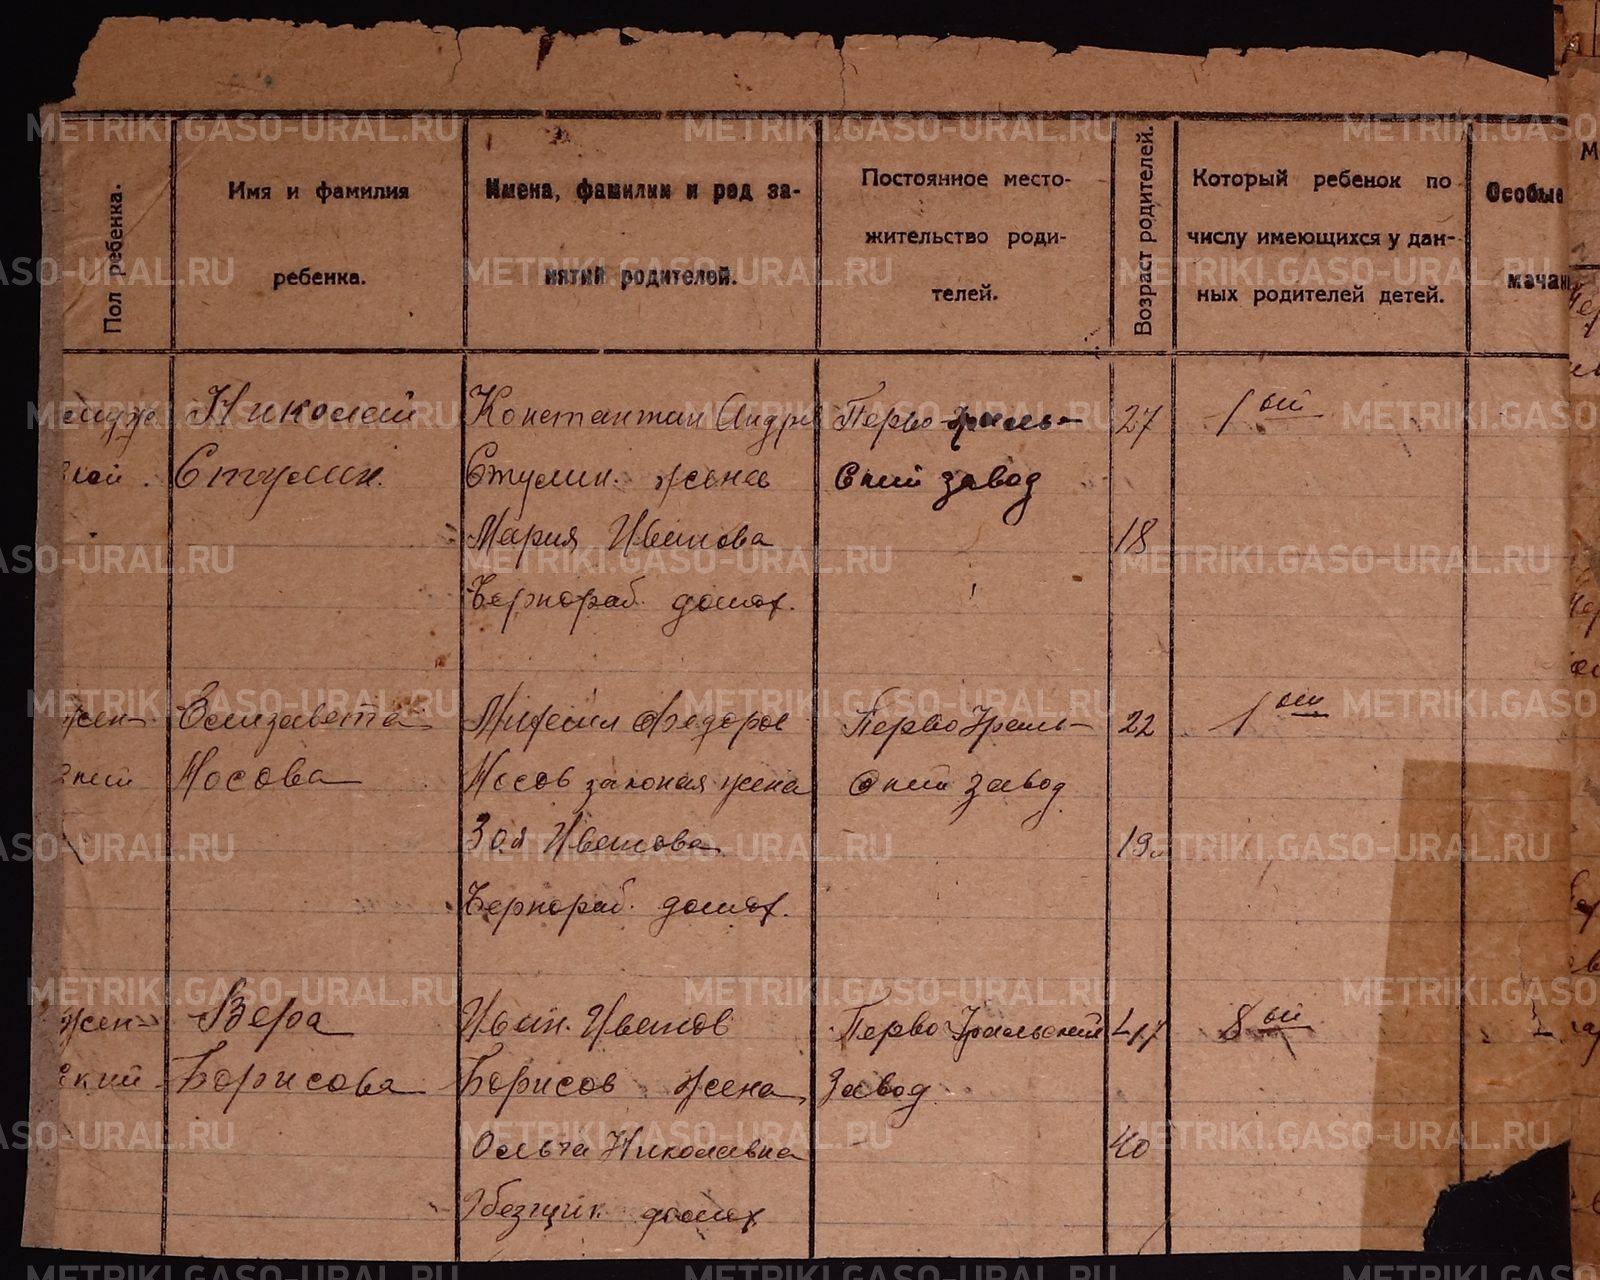 Пол ребенка.
Имя и фамилия
ребенка.
Имена, фамилии и род за-
нятий родителей.
Постоянное место-
жительство роди-
телей.
Возраст родителей.
Который ребенок по
числу имеющихся у дан-
ных родителей детей.
Особые
мачан
Николай
Стулин.
Константин Андре
Стулин. жена
Мария Иванова
Чернораб. домох.
Перво-Ураль-
Ский завод
27
18
1ый
жен-
ский
Елизавета
Носова
Михаил Федоров
Носов законая жена
Зоя Иванова
Чернораб. домох.
ПервоУраль-
Ский завод
22
19
1ый
жен-
ский
Вера
Борисова
Иван. Иванов
Борисов жена
Ольга Николавна
Обезщик домох
ПервоУральский
Завод
47
40
8ый
METRIKI.GASO-URAL.RU